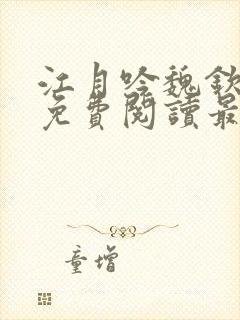 江月吟魏欽
免費閱讀最
童增